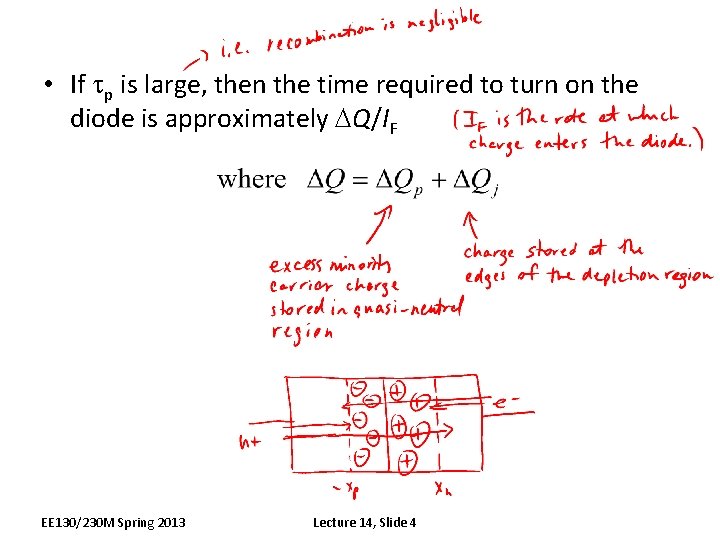 i.e. recombination is negligible
• If τp is large, then the time required to turn on the
diode is approximately ΔQ/IF
(IF is the rate at which
charge enters the diode.)
where ΔQ = ΔQp + ΔQj
excess minority
carrier charge
stored in quasi-neutral
region
charge stored at the
edges of the depletion region
⊖ ⊕
⊖ ⊕ e-
⊖ ⊕
h+ ⊖ ⊕
⊖ ⊕
-xp xn
EE130/230M Spring 2013
Lecture 14, Slide 4